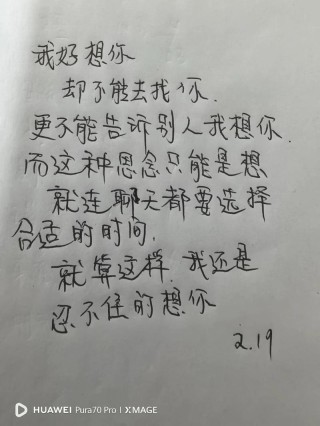 我好想你
却不能去找你.
更不能告诉别人我想你.
而这种思念只能是想
就连聊天都要选择
合适的时间.
就算这样.我还是
忍不住的想你
2.19
HUAWEI Pura70 Pro | XMAGE